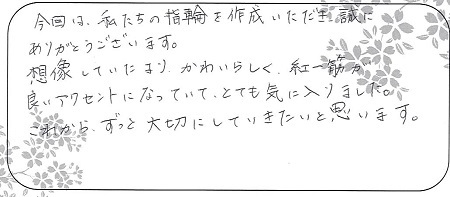 今回は、私たちの指輪を作成いただき誠に
ありがとうございます。
想像していたより、かわいらしく、紅一筋が
良いアクセントになっていて、とても気に入りました。
これから、ずっと大切にしていきたいと思います。